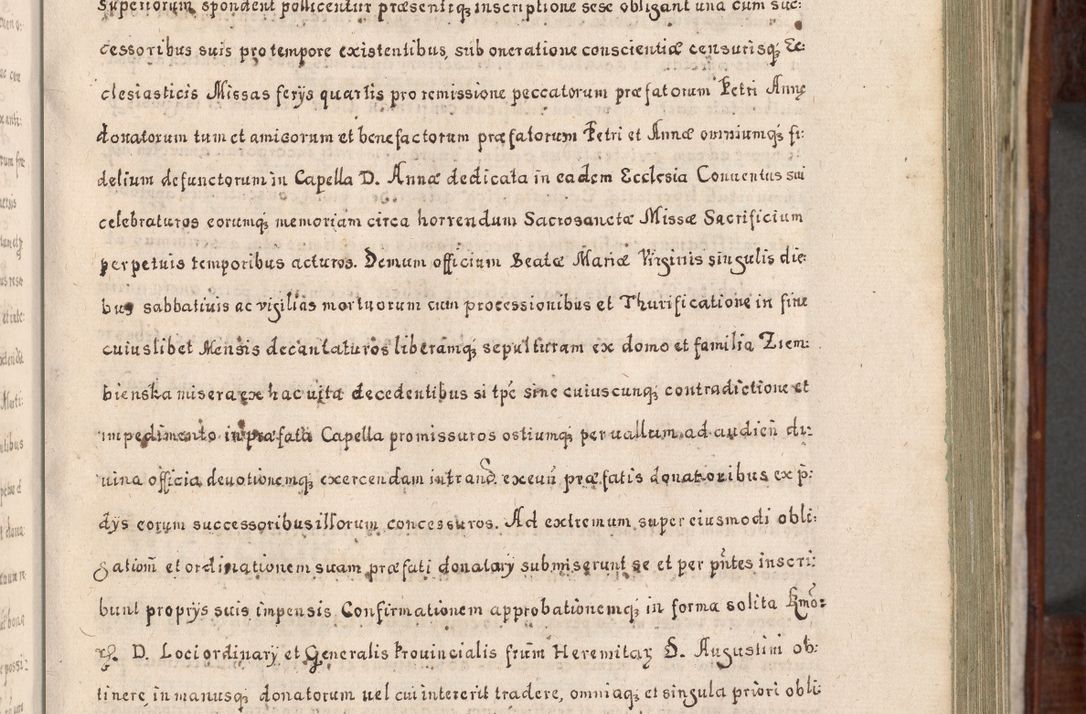 Superiorum spondent pollicentur præsentiq; inscriptione sese obligant una cum suc:
cessoribus suis pro tempore existentibus, sub oneratione conscientiæ censurisq; Ec:
clesiasticis Missas ferijs quartis pro remissione peccatorum præfatorum Petri Annę
donatorum tum et amicorum et benefactorum præfatorum Petri et Annæ omniumq; fi:
delium defunctorum in Capella D. Annæ dedicata in eadem Ecclesia Conuentus sui
celebraturos eorumq; memoriam circa horrendum Sacrosanctæ Missæ Sacrificium
perpetuis temporibus acturos. Demum officium Beatæ Mariæ Virginis singulis die:
bus sabbatiuis ac vigilias mortuorum cum processionibus et Thurificatione in fine
cuiuslibet Mensis decantaturos liberamq; sepulturam ex domo et familia Ziem:
bienska misera ex hac uita decedentibus si tpe sine cuiuscunq; contradictione et
impedimento in præfata Capella promissuros ostiumq; per uallum ad audien di:
uina officia deuotionemq; exercendam intrand exeun præfatis donatoribus ex p:
dijs eorum successoribus illorum concessuros. Ad extremum super eiusmodi obli:
gationi et ordinationem suam præfati donatarij submiserunt se et per pntes inscri:
bunt proprijs suis impensis Confirmationem approbationemq; in forma solita
D. Loci ordinarij et Generalis Prouincialis frum Heremitarz S. Augustini ob:
tinere, in manusq; donatorum uel cui intererit tradere, omniaq; et singula priori obli: